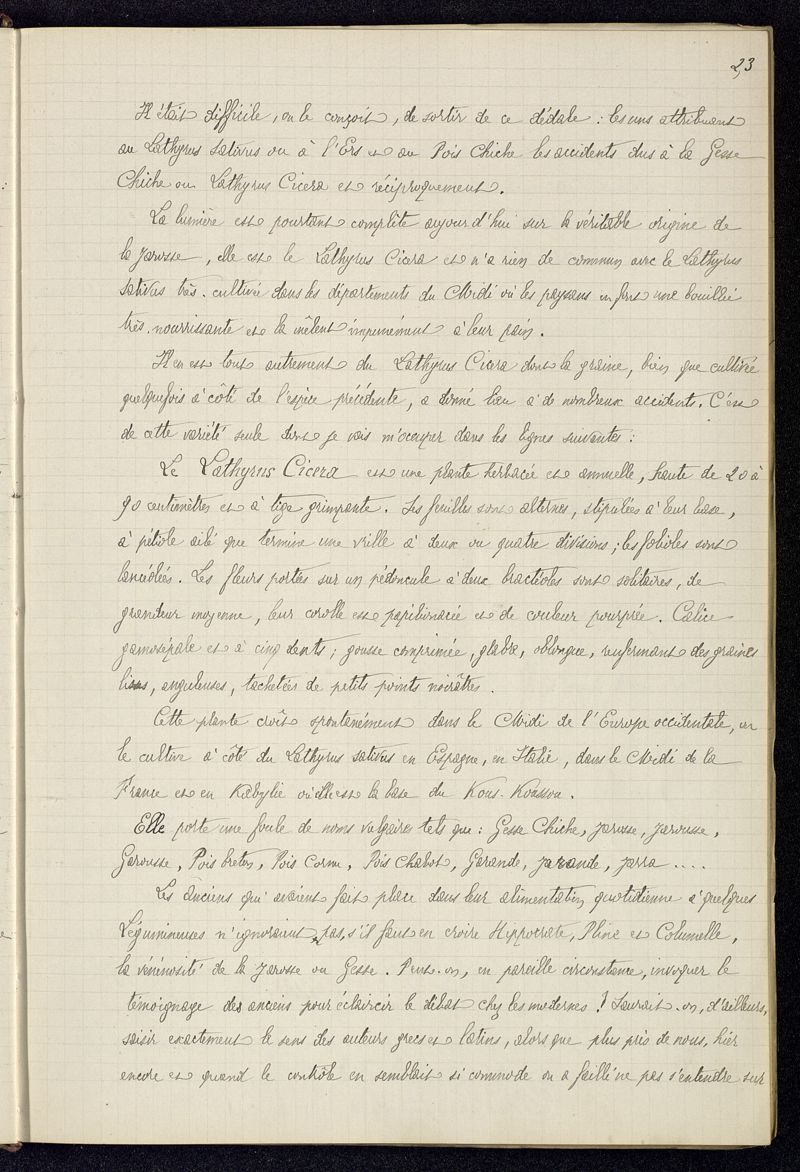 23
Il était difficile, on le conçoit, de sortir de ce dédale : les uns attribuant
au Lathyrus sativus ou à l'Ers et au Pois Chiche les accidents dus à la Gesse
Chiche ou Lathyrus Cicera et réciproquement.
La lumière est pourtant complète aujourd'hui sur la véritable origine de
la Jarosse, elle est le Lathyrus Cicera et n'a rien de commun avec le Lathyrus
sativus très-cultivée dans les départements du Midi où les paysans en font une bouillie
très-nourrissante et la mêlent impunément à leur pain.
Il en est tout autrement du Lathyrus Cicera dont la graine, bien que cultivée
quelquefois à côté de l'espèce précédente, a donné lieu à de nombreux accidents. C'est
de cette variété seule dont je vais m'occuper dans les lignes suivantes :
Le Lathyrus Cicera est une plante herbacée et annuelle, haute de 20 à
90 centimètres et à tige grimpante. Ses feuilles sont alternes, stipulées à leur base,
à pétiole ailé que termine une vrille à deux ou quatre divisions ; les folioles sont
lancéolées. Les fleurs portées sur un pédoncule à deux bractéoles sont solitaires, de
grandeur moyenne, leur corolle est papilionacée et de couleur pourprée. Calice
gamosépale et à cinq dents ; gousse comprimée, glabre, oblongue, renfermant des graines
lisses, anguleuses, tachetées de petits points noirâtres.
Cette plante croît spontanément dans le Midi de l'Europe occidentale, on
la cultive à côté du Lathyrus sativus en Espagne, en Italie, dans le Midi de la
France et en Kabylie où elle est la base du Kous-Koussou.
Elle porte une foule de noms vulgaires tels que : Gesse Chiche, Jarosse, Jarousse,
Garousse, Pois breton, Pois Cornu, Pois Chabot, Garande, Jarande, Jarra ....
Les anciens qui avaient fait place dans leur alimentation quotidienne à quelques
Légumineuses n'ignoraient pas, s'il faut en croire Hippocrate, Pline et Columelle,
la vénénosité de la Jarosse ou Gesse. Peut-on, en pareille circonstance, invoquer le
témoignage des anciens pour éclaircir le débat chez les modernes ? Saurait-on, d'ailleurs,
saisir exactement le sens des auteurs grecs et latins, alors que plus près de nous, hier
encore et quand le contrôle en semblait si commode on a failli ne pas s'entendre sur